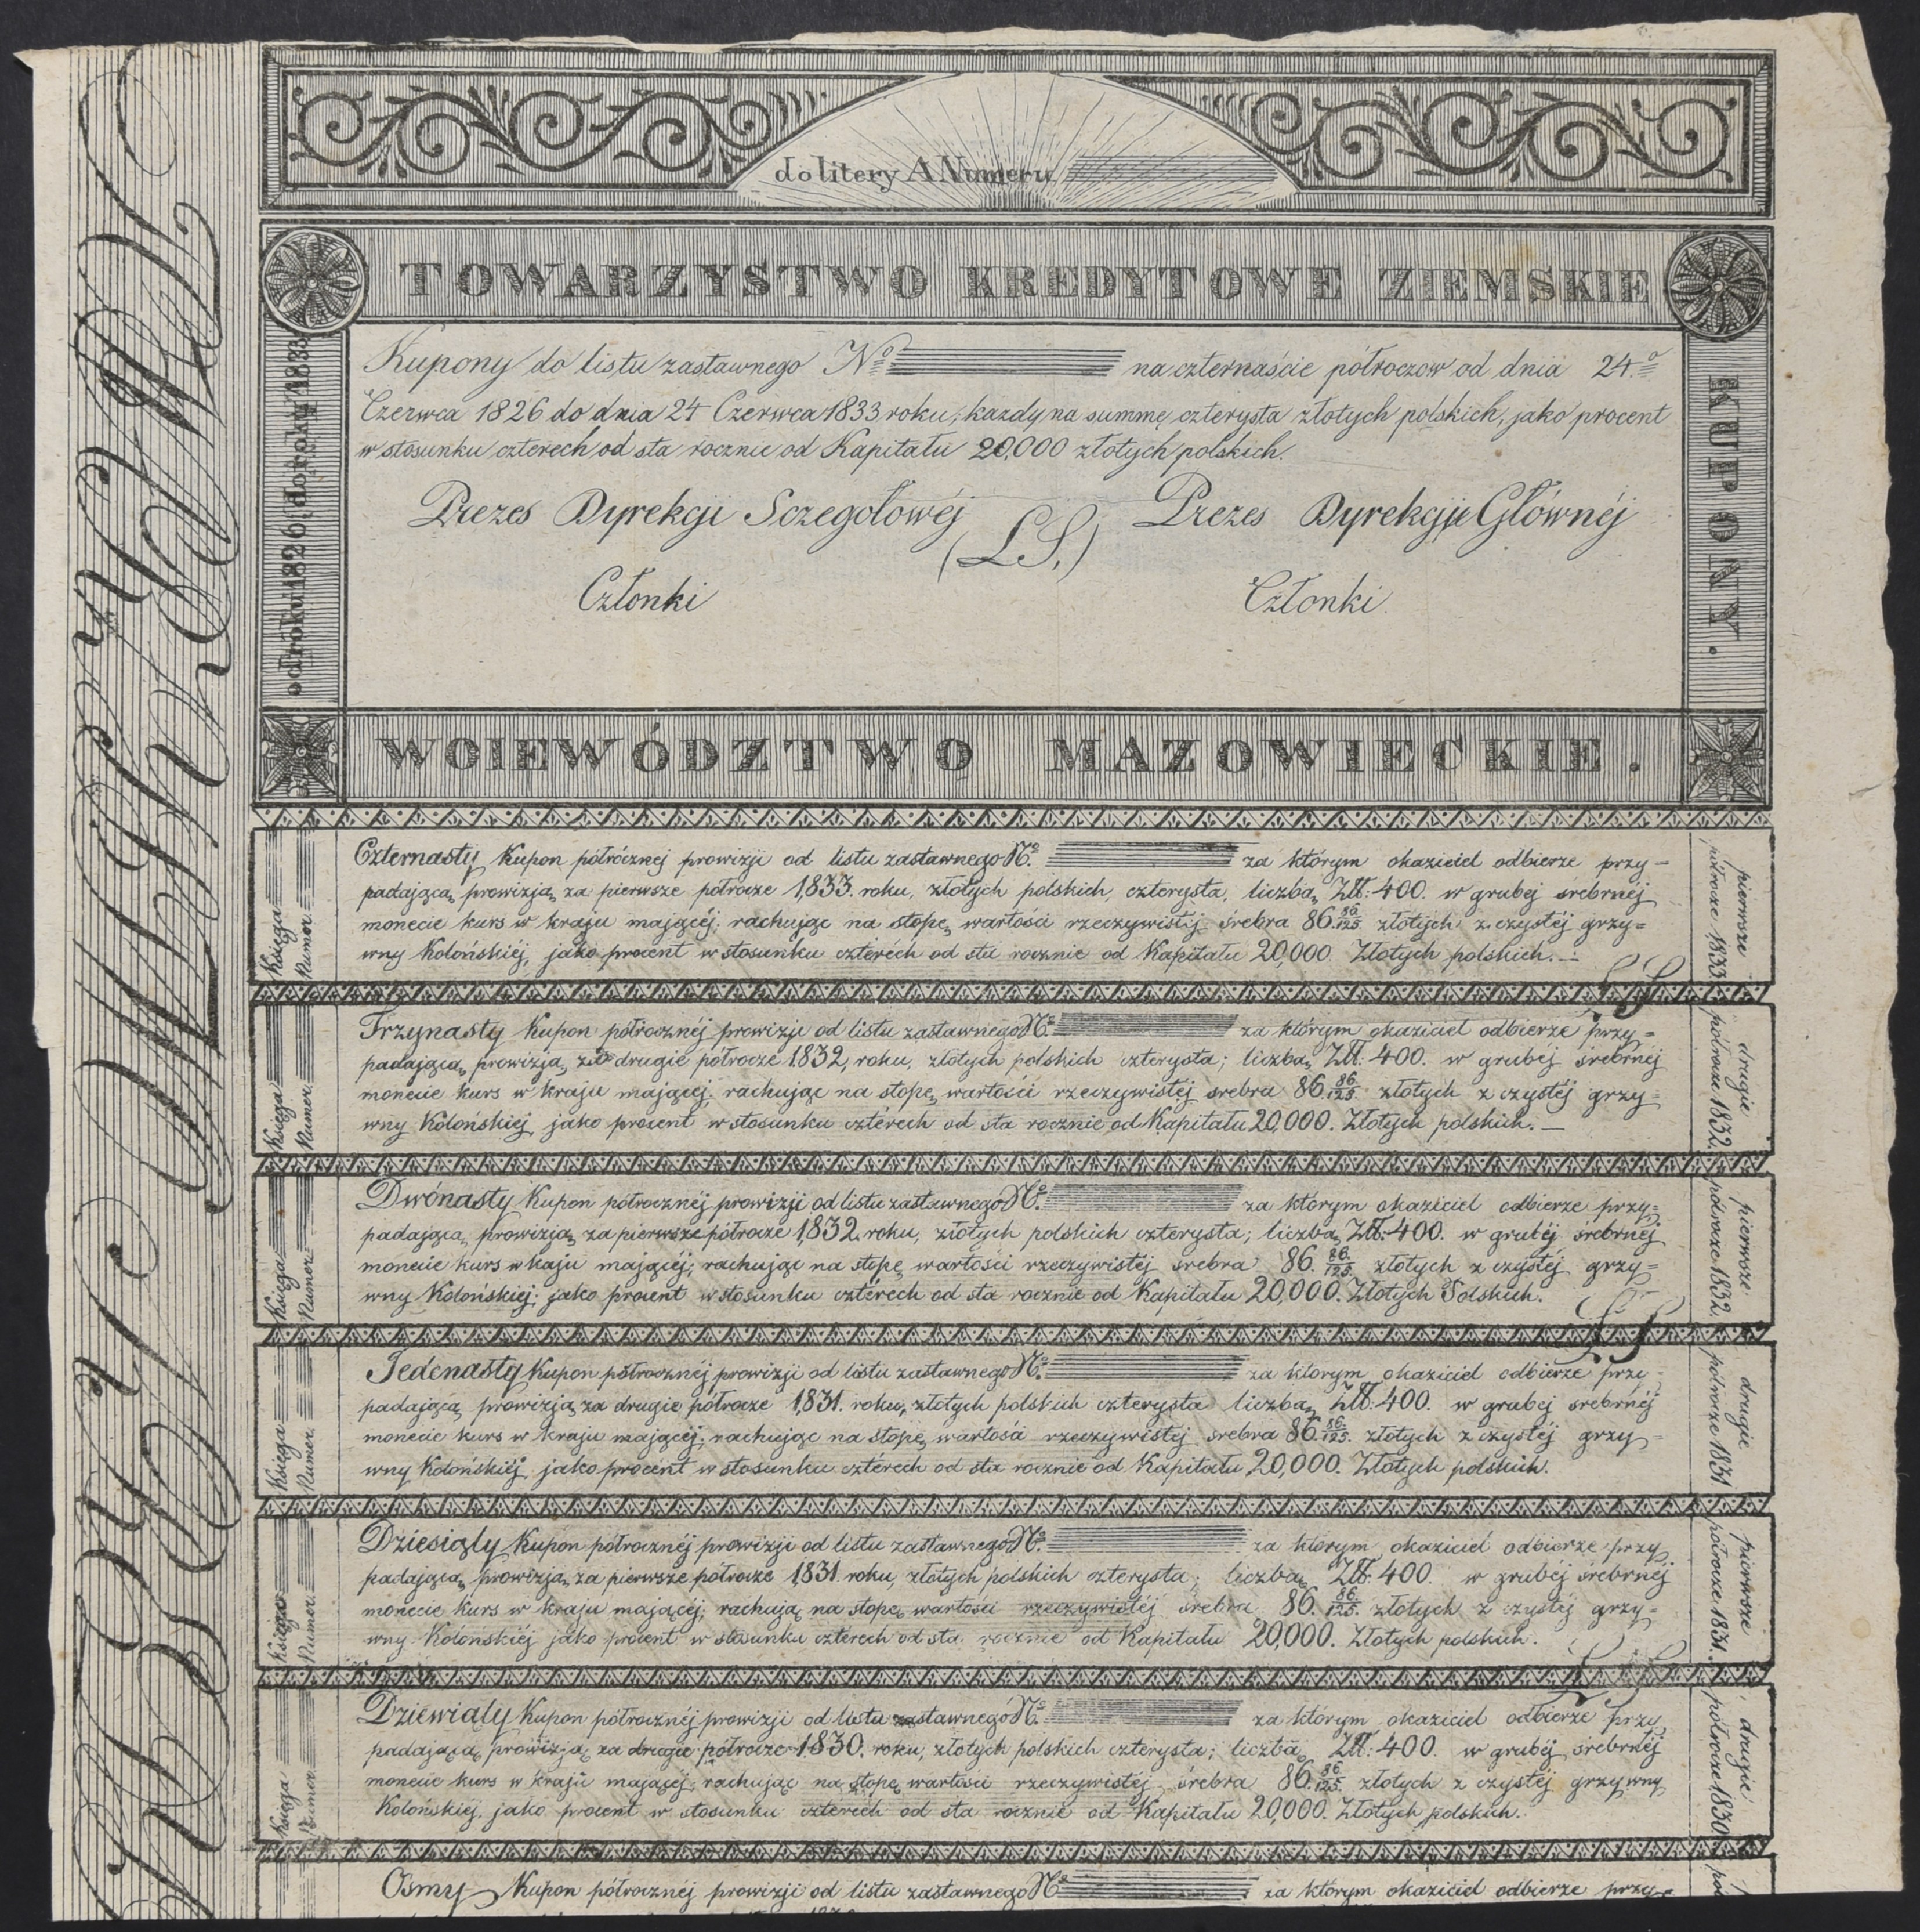 do litery A Numeru
TOWARZYSTWO KREDYTOWE ZIEMSKIE
od roku 1826 do roku 1833
KUPONY.
Kupony do listu zastawnego No na czternaście półroczow od dnia 24.o
Czerwca 1826 do dnia 24 Czerwca 1833 roku, kazdy na summę czterysta złotych polskich, jako procent
w stosunku czterech od sta rocznie od Kapitału 20,000 złotych polskich.
Prezes Dyrekcji Sczegołowéj Prezes Dyrekcji Głównéj
(L.S.)
Członki Członki.
WOIEWÓDZTWO MAZOWIECKIE.
Księga
Numer
Czternasty Kupon półrócznej prowizji od listu zastawnego No. za którym okaziciel odbierze przy=
padaiącą prowizją za pierwsze półrocze 1833. roku, złotych polskich, czterysta, liczbą Złt: 400. w grubej śrebrnéj
monecie kurs w kraju maiącéj; rachując na stopę wartości rzeczywistéj śrebra 86.86/125. złotych z czystéj grzy=
wny Kolońskiéj, jako procent w stosunku czterech od sta rocznie od Kapitału 20,000. Złotych polskich.
pierwsze
półrocze 1833
Księga
Numer
Trzynasty Kupon półrocznéj prowizji od listu zastawnego No. za którym okaziciel odbierze przy=
padaiącą prowizją za drugie półrocze 1832, roku, złotych polskich czterysta; liczbą Złt: 400. w grubéj śrebrnéj
monecie kurs w kraju maiącéj; rachując na stopę wartości rzeczywistéj śrebra 86.86/125. złotych z czystéj grzy=
wny Kolońskiéj, jako procent w stosunku cztérech od sta rocznie od Kapitału 20,000. Złotych polskich.
drugie
półrocze 1832.
Księga
Numer
Dwónasty Kupon półrocznéj prowizji od listu zastawnego No. za którym okaziciel odbierze przy=
padaiącą prowizją za pierwsze półrocze 1832 roku, złotych polskich czterysta; liczbą Złt: 400. w grubéj śrebrnéj
monecie kurs w kaju maiącéj; rachując na stopę wartości rzeczywistéj śrebra 86.86/125. złotych z czystéj grzy=
wny Kolońskiéj; jako procent w stosunku cztérech od sta rocznie od Kapitału 20,000. Złotych Polskich.
pierwsze
półrocze 1832
Księga
Numer
Jedenasty Kupon półrocznéj prowizji od listu zastawnego No. za ktorym okaziciel odbierze przy=
padaiącą prowizją za drugie półrocze 1831. roku, złotych polskich czterysta liczbą Złt: 400. w grubej śrebrnéj
monecie kurs w kraju maiącéj; rachując na stopę wartości rzeczywistéj śrebra 86.86/125. złotych z czystéj grzy=
wny Kolońskiéj jako procent w stosunku czterech od sta rocznie od Kapitału 20,000. Złotych polskich.
drugie
półrocze 1831
Księga
Numer
Dziesiąty Kupon półrocznéj prowizji od listu zastawnego No. za którym okaziciel odbierze przy
padaiącą prowizją za pierwsze półrocze 1831 roku, złotych polskich czterysta; liczbą Złt: 400. w grubéj śrebrnéj
monecie kurs w kraju maiącéj; rachują na stopę wartości rzeczywistéj śrebra 86.86/125. złotych z czystéj grzy=
wny Kolońskiéj jako procent w stosunku czterech od sta rocznie od Kapitału 20,000. Złotych polskich.
pierwsze
półrocze 1831.
Księga
Numer
Dziewiąty Kupon półrocznéj prowizji od listu zastawnego No. za którym okaziciel odbierze przy
padaiącą prowizją za drugie półrocze 1830. roku, złotych polskich czterysta; liczbą Złt: 400. w grubéj śrebrnéj
monecie kurs w kraju maiącéj; rachując na stopę wartości rzeczywistéj śrebra 86.86/125. złotych z czystéj grzywny
Kolońskiéj jako procent w stosunku czterech od sta rocznie od Kapitału 20,000. Złotych polskich.
drugie
półrocze 1830
Osmy Kupon półrocznéj prowizji od listu zastawnego No za którym okaziciel odbierze przy=